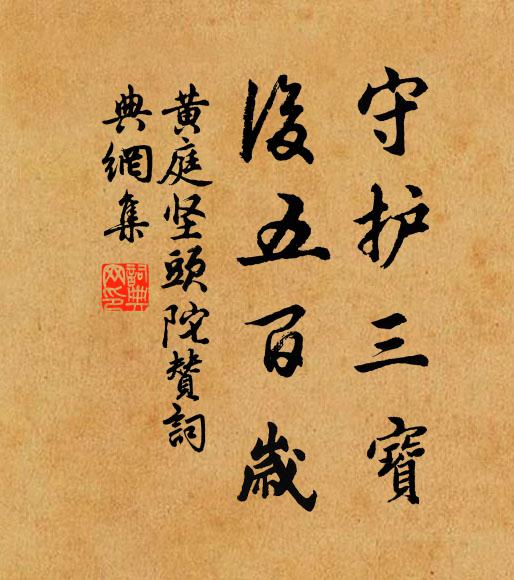 守护三寶
後五百歲
黄庭坚頭陀贊詞
典網集
詞典网印